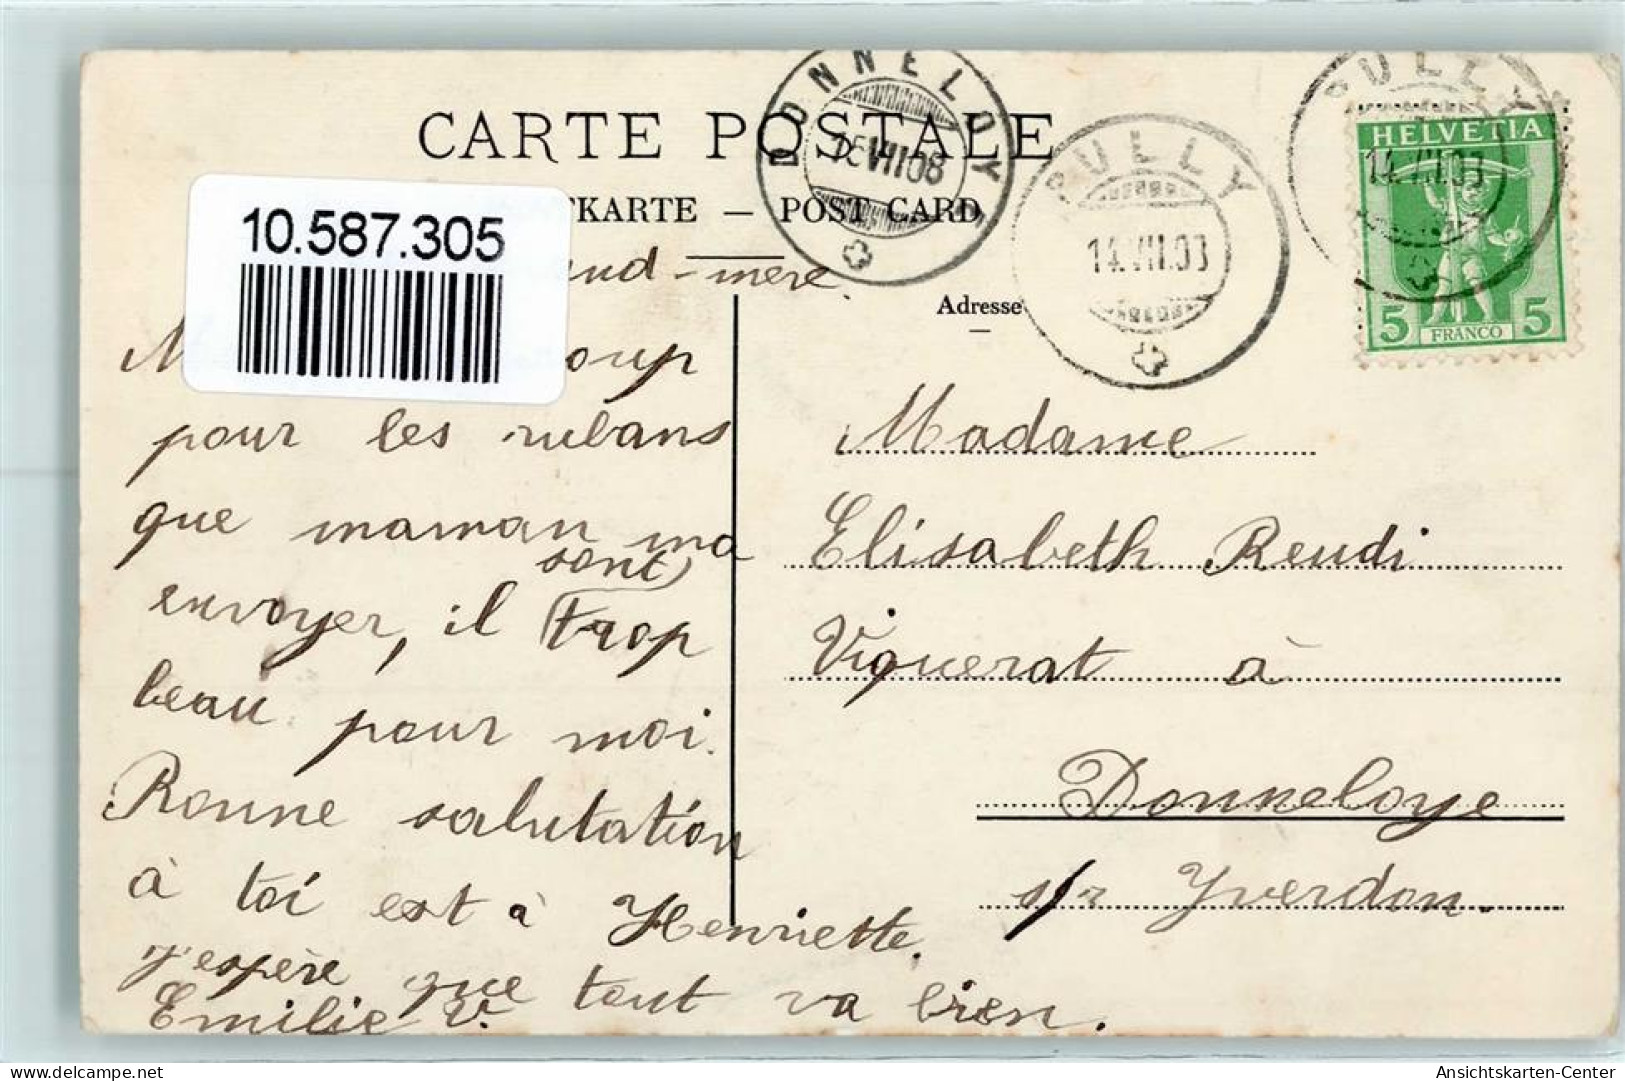 CARTE POSTALE
KARTE — POST CARD
10.587.305
DONNELOY
15 VII 08
PULLY
14. VII. 03
PULLY
14. VII. 03
HELVETIA
5 FRANCO 5
Adresse
and-mère.
M oup
pour les rubans
que maman ma
sont
envoyer, il trop
beau pour moi.
Bonne salutation
à toi est à Henriette.
J'espère que tout va bien.
Emilie V.
Madame
Elisabeth Reudi
Viquerat à
Donneloye
s/r Yverdon.
Ansichtskarten-Center